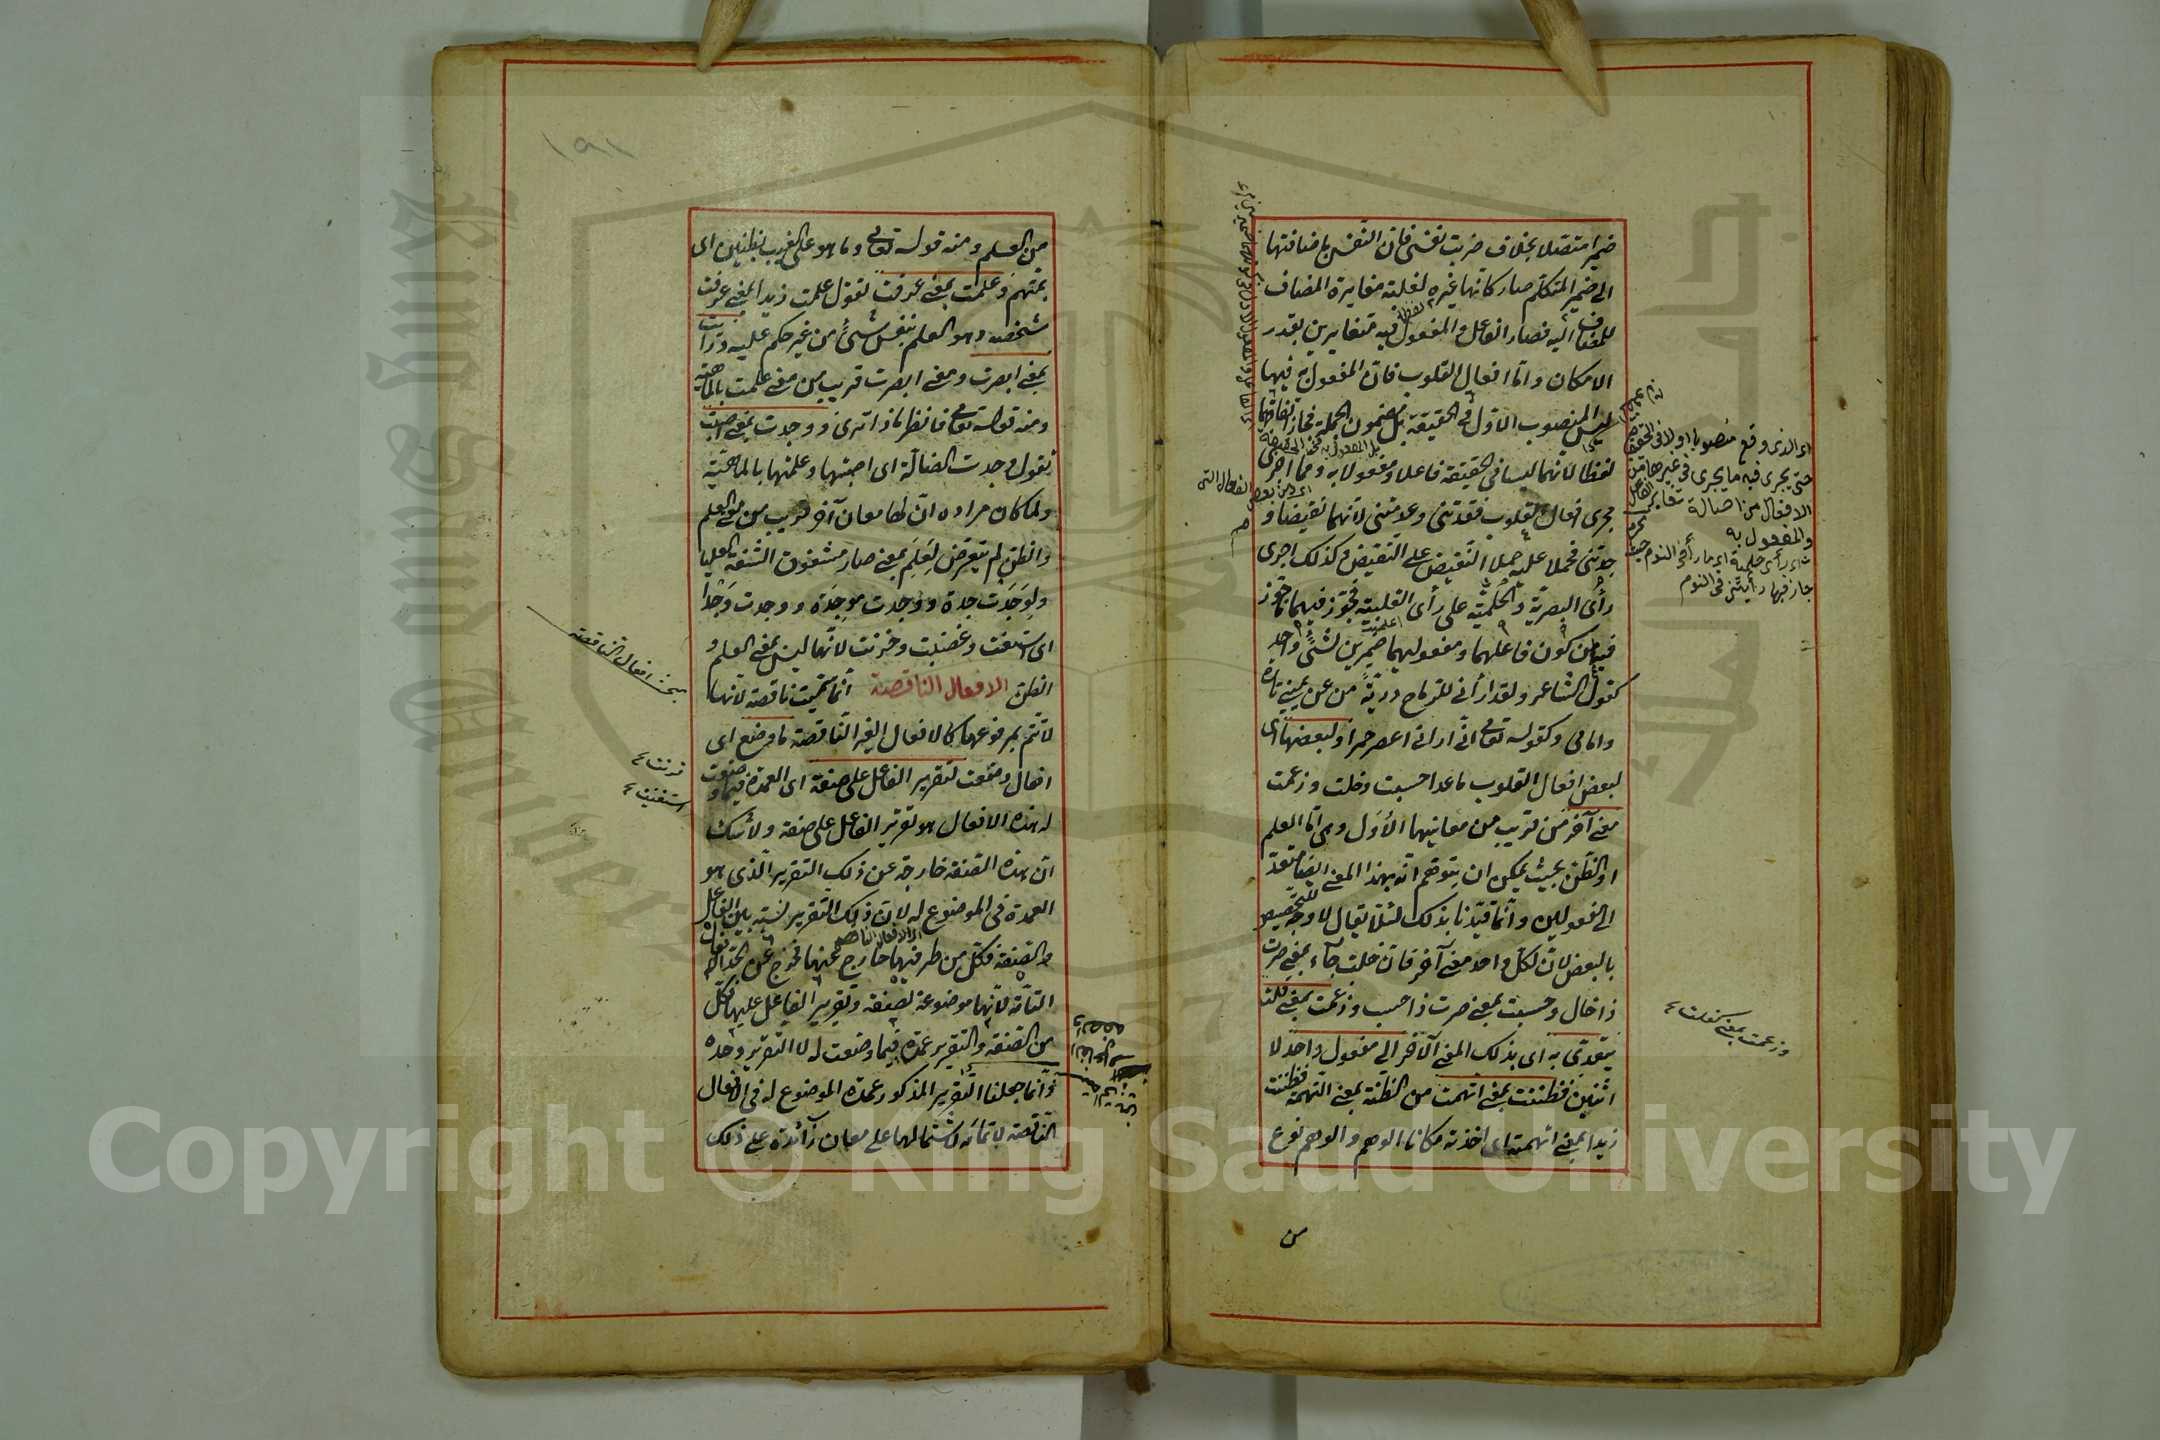 ضميرا متصلا بخلاف ضربت نفسى فان النفس باضافتها
الى ضمير المتكلم صار كانها غيره لغلبة مغايرة المضاف
للمضاف اليه فصار الفاعل والمفعول فيه متغايرين بقدر
الامكان واما افعال القلوب فان المفعول به فيها
ليس المنصوب الاول فى الحقيقة بل مضمون الجملة فجاز اتفاقهما
لفظا لانهما ليسا فى الحقيقة فاعلا ومفعولا به ومما اجرى
مجرى افعال القلوب فقدتنى وعدمتنى لانهما نقيضا و
جدتنى فحملا عليه حملا للنقيض على النقيض وكذلك اجرى
رأى البصرية والحلمية على رأى القلبية فجوز فيهما ما جوز
فيها من كون فاعلهما ومفعوليهما ضميرين لشئ واحد
كقول الشاعر ولقد ارانى للرماح دريئة من عن يمينى تارة
وامامى وكقوله تعالى انى ارانى اعصر خمرا ولبعضها اى
لبعض افعال القلوب ما عدا حسبت وخلت وزعمت
معنى آخر قريب من معانيها الاول وهى اما العلم
او الظن بحيث يمكن ان يتوهم انه بهذا المعنى ايضا متعد
الى المفعولين وانما قيدنا بذلك لئلا يقال لا وجه للتخصيص
بالبعض لان لكل واحد معنى آخر فان خلت جاء بمعنى صرت
ذا خال وحسبت بمعنى صرت ذا حسب وزعمت بمعنى كفلت
يتعدى به اى بذلك المعنى الآخر الى مفعول واحد لا
اثنين فظننت بمعنى اتهمت من الظنة بمعنى التهمة فظننت
زيدا بمعنى اتهمته اى اخذته مكانا لوهم والوهم نوع
من
اى الذى وقع منصوبا اولا فى الحقيقة
حتى يجرى فيه ما يجرى فى غيرها من
الافعال من اصالة تغاير الفاعل
والمفعول به
جاز فيها رأيتنى فى النوم
وزعمت بمعنى كفلت
١٩١
من العلم ومنه قوله تعالى وما هو على الغيب بظنين اى
بمتهم وعلمت بمعنى عرفت تقول علمت زيدا بمعنى عرفت
شخصه وهو العلم بنفس شئ من غير حكم عليه ورأيت
بمعنى ابصرت ومعنى ابصرت قريب من معنى علمت بالماهية
ومنه قوله تعالى فانظر ماذا ترى ووجدت بمعنى اصبت
تقول وجدت الضالة اى اصبتها وعلمتها بالماهية
ولما كان مراده ان لها معان آخر قريب من معنى العلم
والظن لم يتعرض لعلم بمعنى صار مشقوق الشفة العليا
ولوجدت جدة ووجدت موجدة ووجدت وجدا
اى استغنت وغضبت وحزنت لانها ليس بمعنى العلم و
الظن الافعال الناقصة انما سميت ناقصة لانها
لا تتم بمرفوعها كالافعال الغير الناقصة ما وضع اى
افعال وضعت لتقرير الفاعل على صفة اى العمدة فيما وضعت
له هذه الافعال هو تقرير الفاعل على صفة ولا شك
ان هذه الصفة خارجة عن ذلك التقرير الذى هو
العمدة فى الموضوع له لان ذلك التقرير نسبة بين الفاعل
والصفة فكل من طرفيها خارج عنها فخرج عن الحد افعال
التامة لانها موضوعة لصفة وتقرير الفاعل عليها فكل
من الصفة والتقرير عمدة فيما وضعت له لا التقرير وحده
وانما جعلنا التقرير المذكور عمدة الموضوع له فى الافعال
الناقصة لا تمامه لاشتمالها على معان زائدة على ذلك
بحث افعال الناقصة
حزنت
استغنيت
Copyright © King Saud University
King Saud University